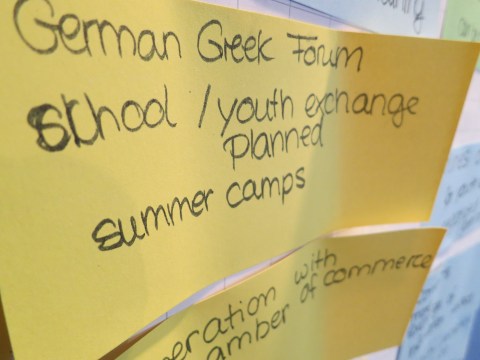 German Greek Forum
school / youth exchange
planned
summer camps
with
of commerce